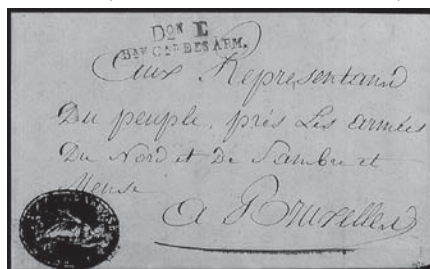 Don E
Bau G.al DES ARM.
Aux Representans
Du peuple, près Les armées
Du Nord et De Sambre et
Meuse
a Bruxelles